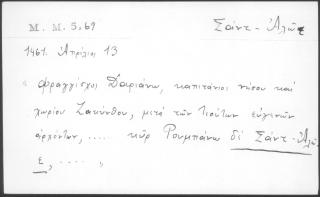 M. M. 5, 69
Σάντ - Ἀλῶε
1461. Ἀπρίλιος 13
« Φραγγίσχος Δαριάνω, καπιτάνιος νήσου καὶ
χωρίου Ζακύνθου, μετὰ τῶν τιούτων εὐγενῶν
ἀρχόντων, ..... κὺρ Ρουμπάνω δὲ Σάντ-Ἀλῶ-
ε, ....,